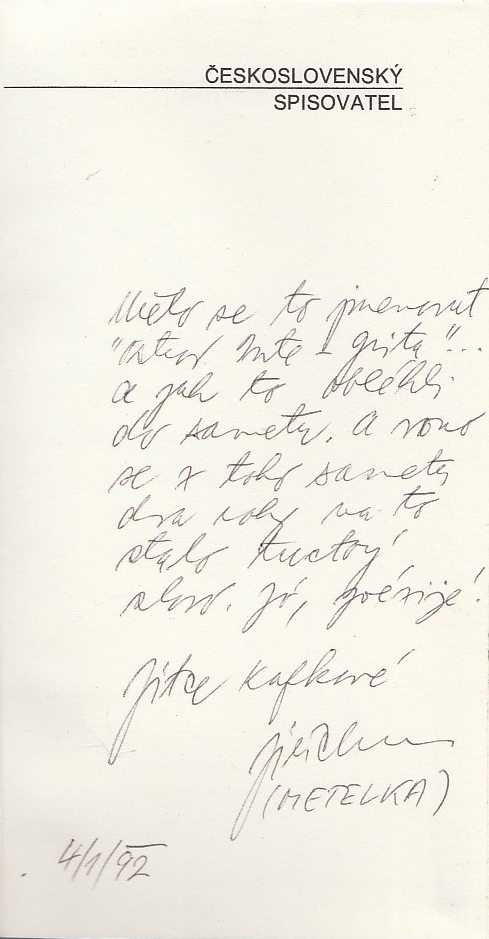 ČESKOSLOVENSKÝ
SPISOVATEL
Mělo se to jmenovat
"Ostrov Inte-grita"...
a jak to oblékli
do sametu. A vono
se z toho sametu
dva roky na to
stalo tuctový
slovo. Jó, poézije!
Jitce Kafkové
(METELKA)
4/1/92